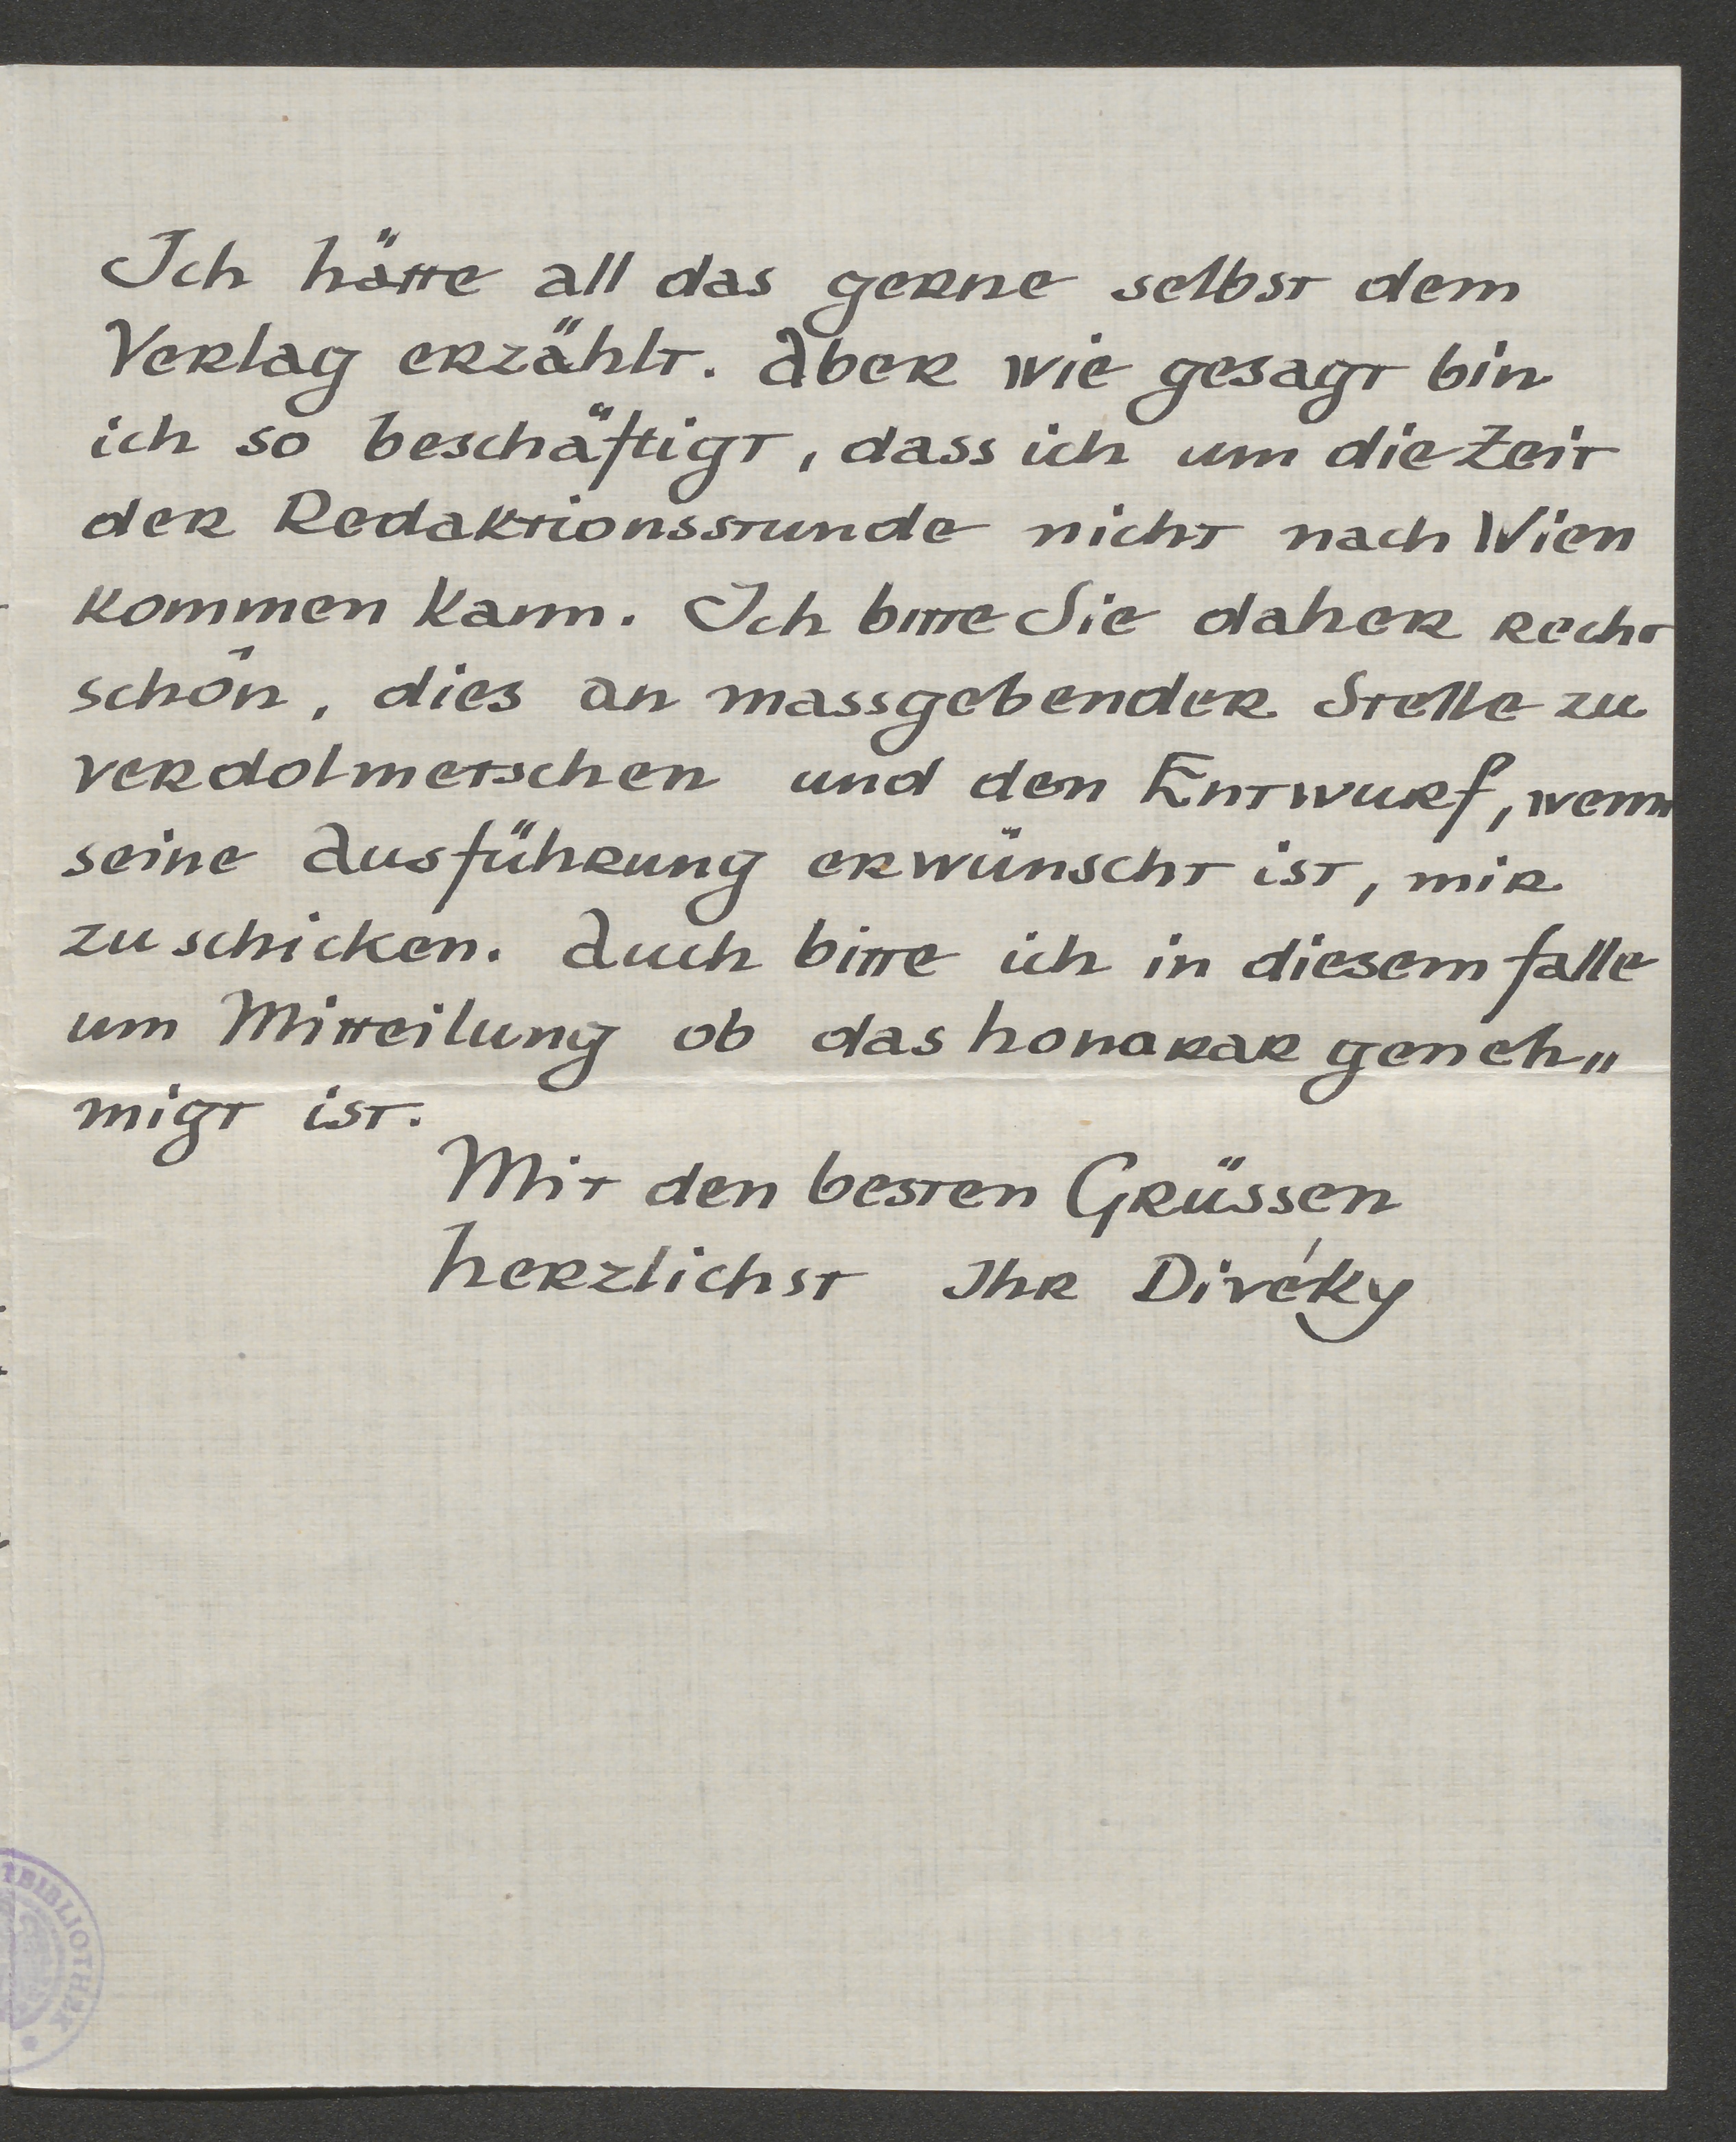 Ich hätte all das gerne selbst dem
Verlag erzählt. Aber wie gesagt bin
ich so beschäftigt, dass ich um die Zeit
der Redaktionsstunde nicht nach Wien
kommen kann. Ich bitte Sie daher recht
schön, dies an massgebender Stelle zu
verdolmetschen und den Entwurf, wenn
seine Ausführung erwünscht ist, mir
zu schicken. Auch bitte ich in diesem falle
um Mitteilung ob das honorar geneh„
migt ist.
Mit den besten Grüssen
herzlichst Ihr Divéky
BIBLIOTHEK